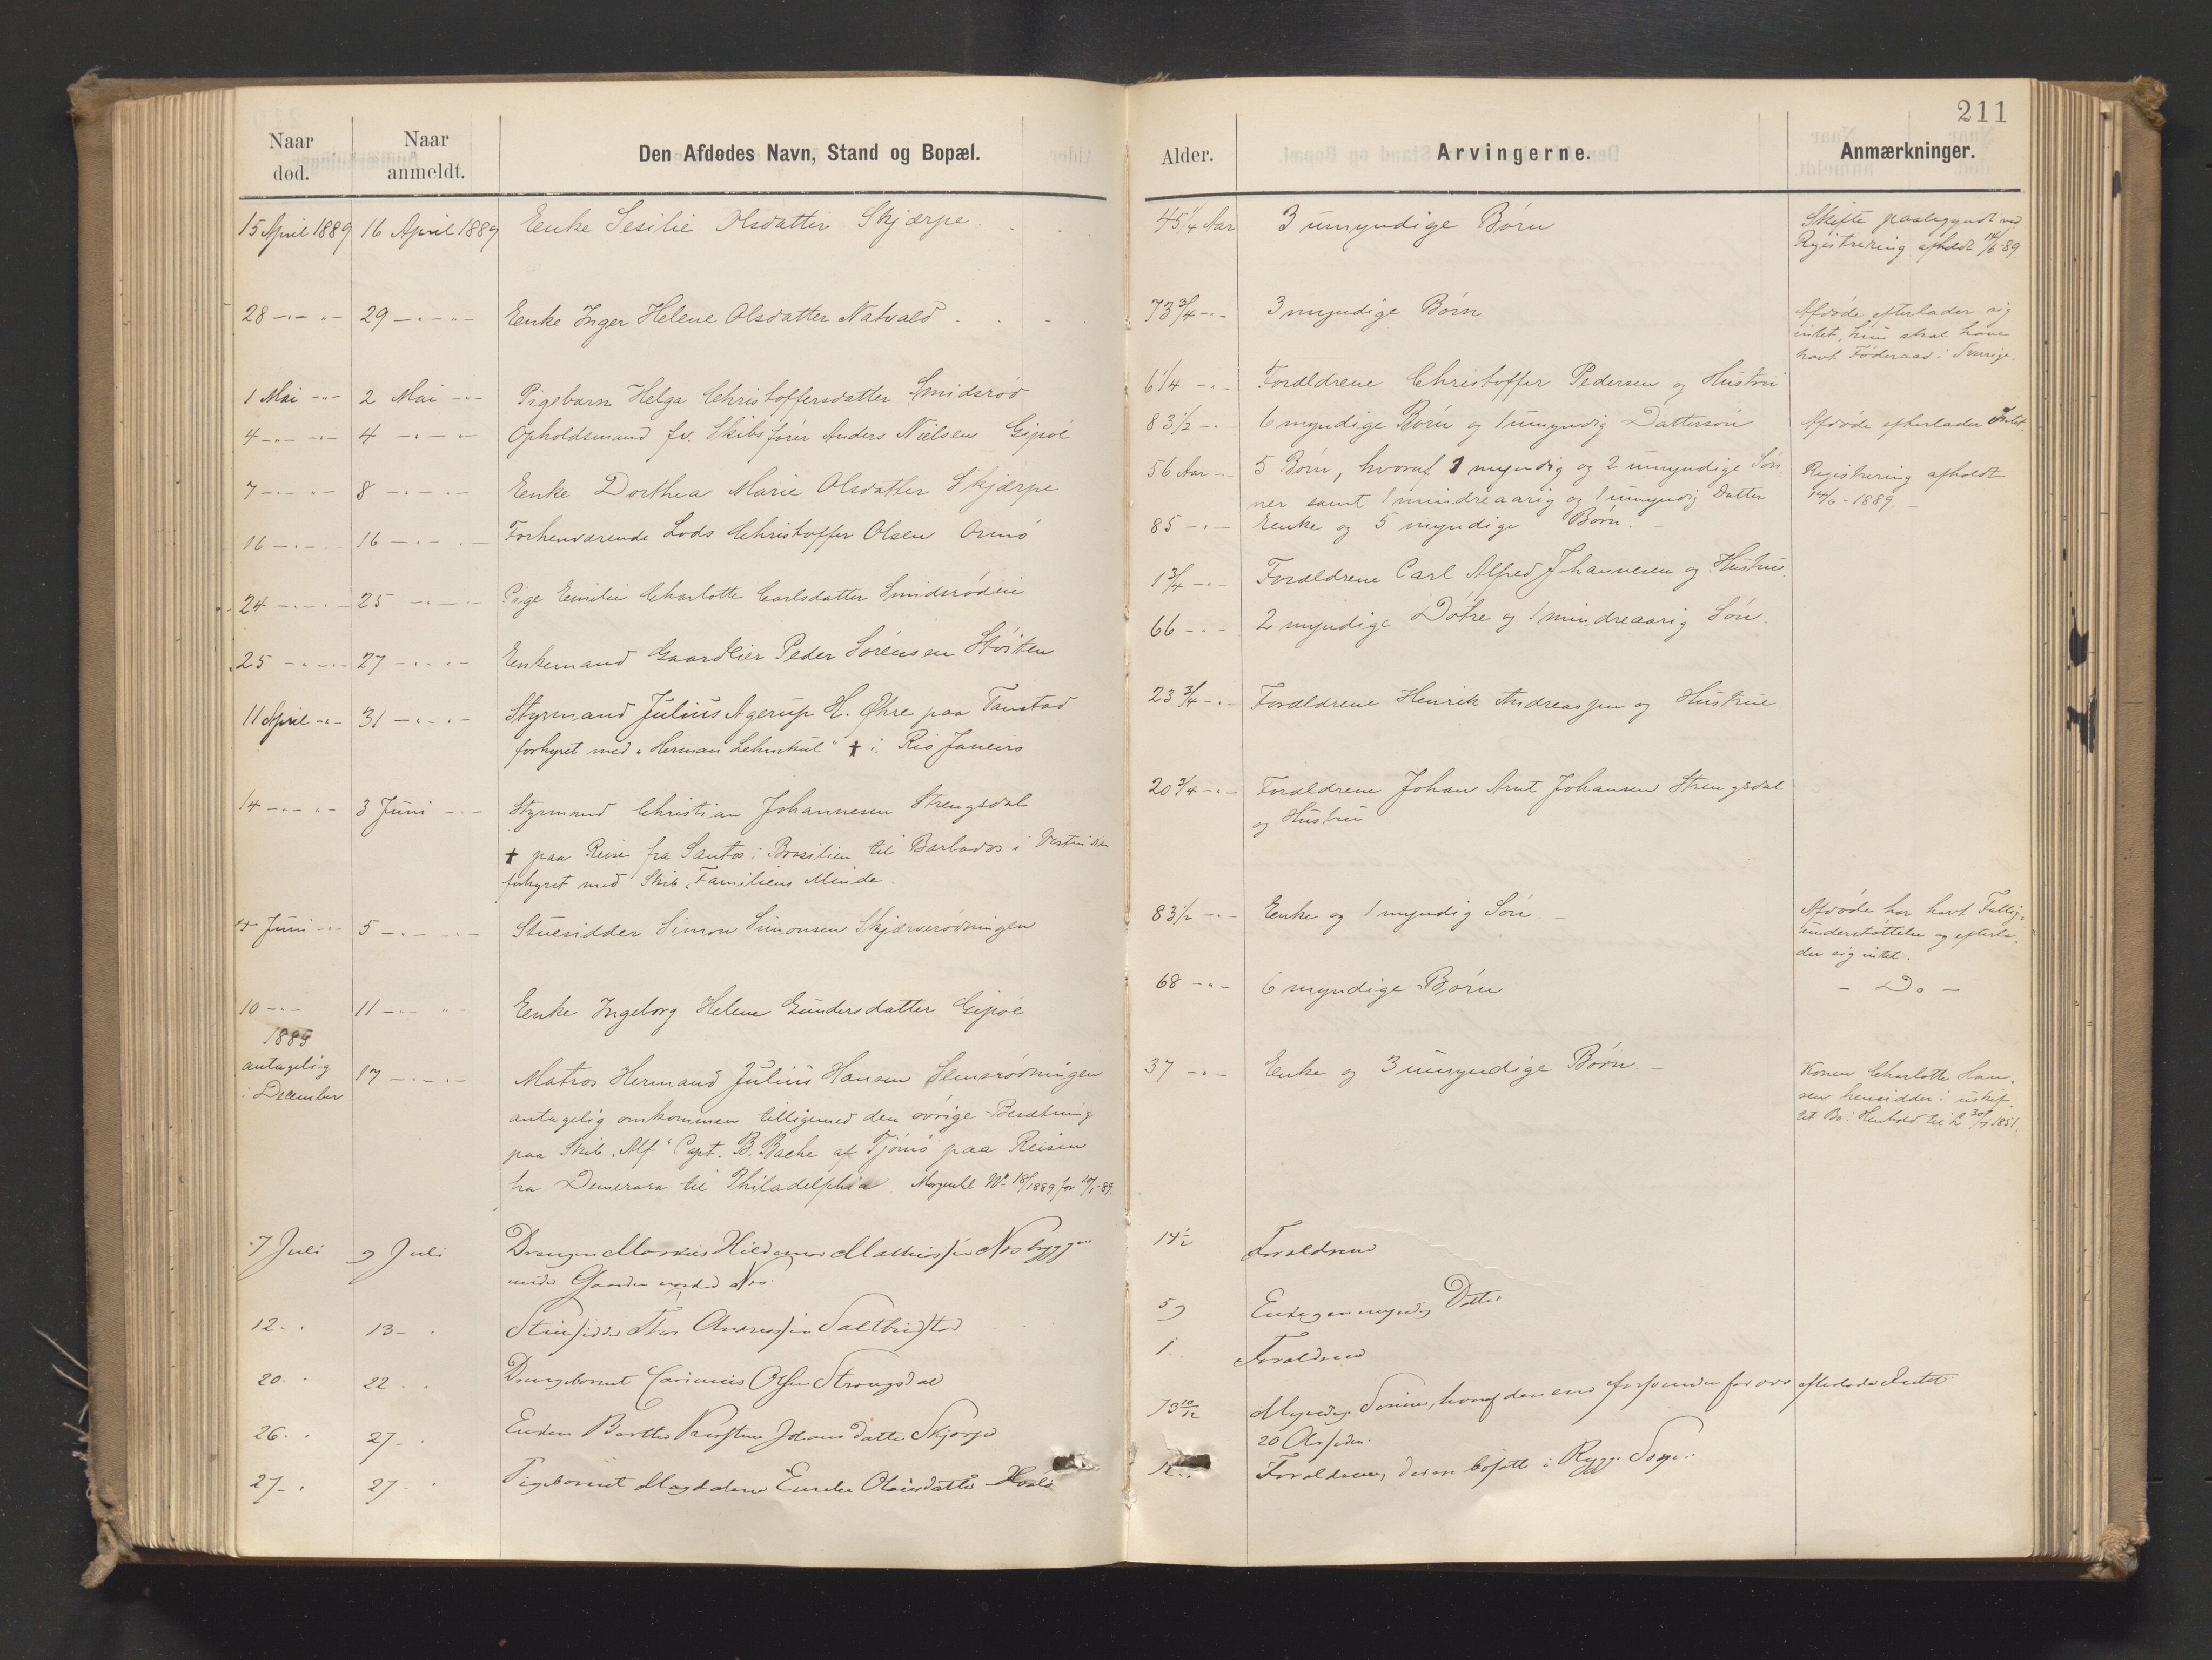 211
Naar død. Naar anmeldt. Den Afdødes Navn, Stand og Bopæl. Alder. Arvingerne. Anmærkninger.
15 April 1889 16 April 1889 Enke Sesilie Olsdatter Skjærpe 45 1/4 Aar 3 umyndige Børn Skifte paabegyndt ved
Registrering afholdt 14/6 89.
28 -"- -"- 29 -"- -"- Enke Inger Helene Olsdatter Natvald 73 3/4 -"- 3 myndige Børn Afdøde efterlader sig
intet, hun skal have
havt Føderaad i Sverrige.
1 Mai -"- 2 Mai -"- Pigebarn Helga Christoffersdatter Smidsrød 6 1/4 -"- Forældrene Christoffer Pedersen og Hustru
4 -"- -"- 4 -"- -"- Opholdsmand fv. Skibsfører Anders Nielsen Gipøe 83 1/2 -"- 6 myndige Børn og 1 umyndig Dattersøn Afdøde efterlader Intet.
7 -"- -"- 8 -"- -"- Enke Dorthea Marie Olsdatter Skjærpe 56 Aar -"- 5 Børn, hvoraf 1 myndig og 2 umyndige Søn-
ner samt 1 mindreaarig og 1 umyndig Datter Registrering afholdt
14/6 - 1889.
16 -"- -"- 16 -"- -"- Forhenværende Lods Christoffer Olsen Ormø 85 -"- Enke og 5 myndige Børn.
24 -"- -"- 25 -"- -"- Pige Emilie Charlotte Carlsdatter Smidsrødeie 1 3/4 -"- Forældrene Carl Alfred Johannesen og Hustru
25 -"- -"- 27 -"- -"- Enkemand Gaardeier Peder Sørensen Støiten 66 -"- 2 myndige Døtre og 1 mindreaarig Søn.
11 April -"- 31 -"- -"- Styrmand Julius Agerup H. Øhre paa Tanstad 23 3/4 -"- Forældrene Henrik Andreassen og Hustrue
forhyret med "Herman Lehmkul" † i Rio Janeiro
14 -"- -"- 3 Juni -"- Styrmand Christian Johannesen Strengsdal 20 3/4 -"- Forældrene Johan Arnt Johansen Strengsdal
og Hustru
† paa Reise fra Santos i Brasilien til Barbados i Vestindien
forhyret med Skib "Familiens Minde.
4 Juni -"- 5 -"- -"- Stuesidder Simon Simonsen Skjærverødningen 83 1/2 -"- Enke og 1 myndig Søn. Afdøde har havt Fattig-
understøttelse og efterla-
der sig intet.
10 -"- 11 -"- -"- Enke Ingeborg Helene Gundersdatter Gipøe 68 -"- 6 myndige Børn - Do -
1889
antagelig
i December 17 -"- -"- Matros Hermand Julius Hansen Semsrødningen 37 -"- Enke og 3 umyndige Børn. Konen Charlotte Han-
sen hensidder i uskif-
tet Bo i Henhold til L 30/7 1851.
antagelig omkommen tilligemed den øvrige Besætning
paa Skib "Alf" Capt. B. Bache af Tjømø paa Reisen
fra Demerara til Philadelphia. Morgenbl No 18/1889 for 10/1-89.
7 Juli 9 Juli Drengen Markus Hildemar Mathiassen Nesbryggen 14 1/2 Forældrene
under Gaarden nordre Nes.
12 -"- 13 -"- Stuesidder Thor Andreassen Saltbustad 59 Enke og en myndig Datter
20 -"- 22 -"- Drengebarnet Carimius Olsen Strengsdal 1 Forældrene
26 -"- 27 -"- Enken Berthe Kirstine Johansdatter Skjerpe 73 10/12 Myndige Sønner, hvoraf den ene forsvunden for over efterlader Intet
20 Aar siden.
27 -"- 27 -"- Pigebarnet Magdalene Emelie Olausdatter Hvalø Forældrene, der ere bosatte i Rygge Sogn.